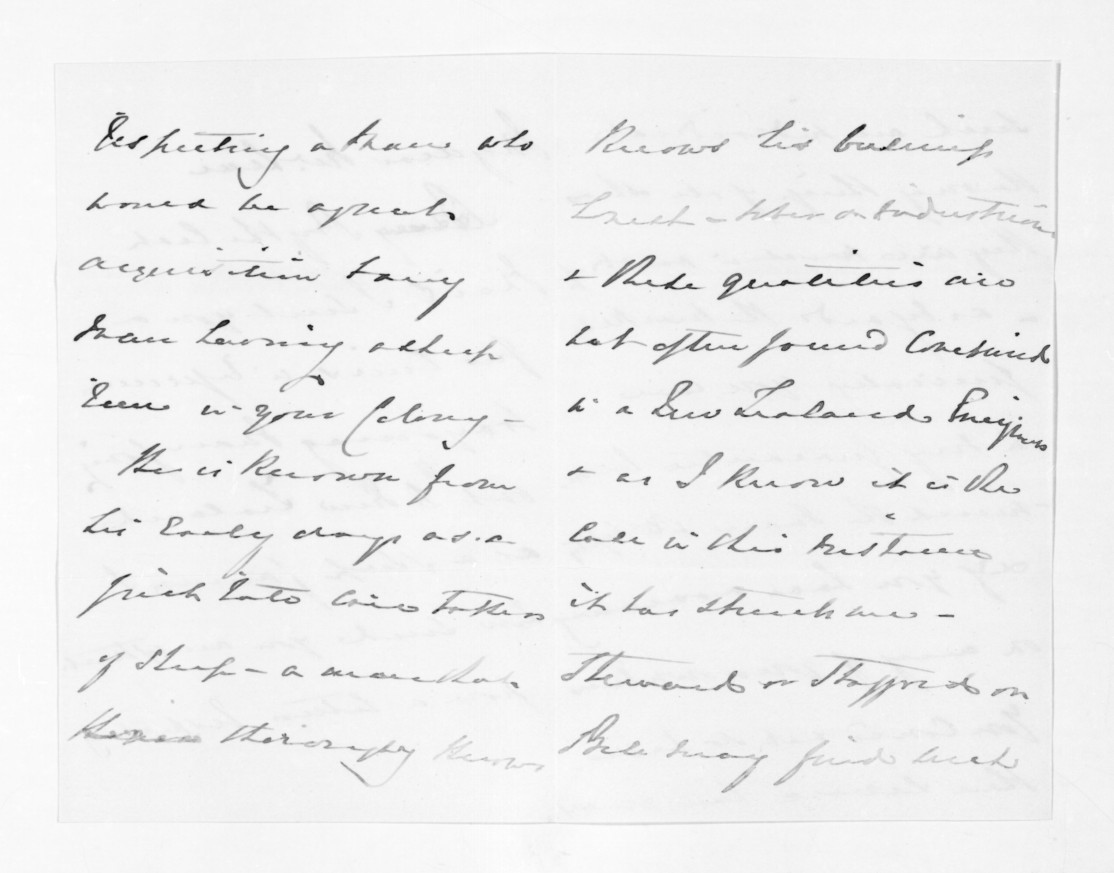 respecting a man who
would be a great
acquisition to any
man having a sheep
run in your Colony -
He is known from
his Early days as a
first rate care taker
of Sheep - a man that
thoroughly knows
Knows his business
trust - sober or industrious
& these qualities are
not often found Combined
in a New Zealand
& as I know it is the
Case in this instance
it has struck me -
Steward or Stafford or
Bell may find such